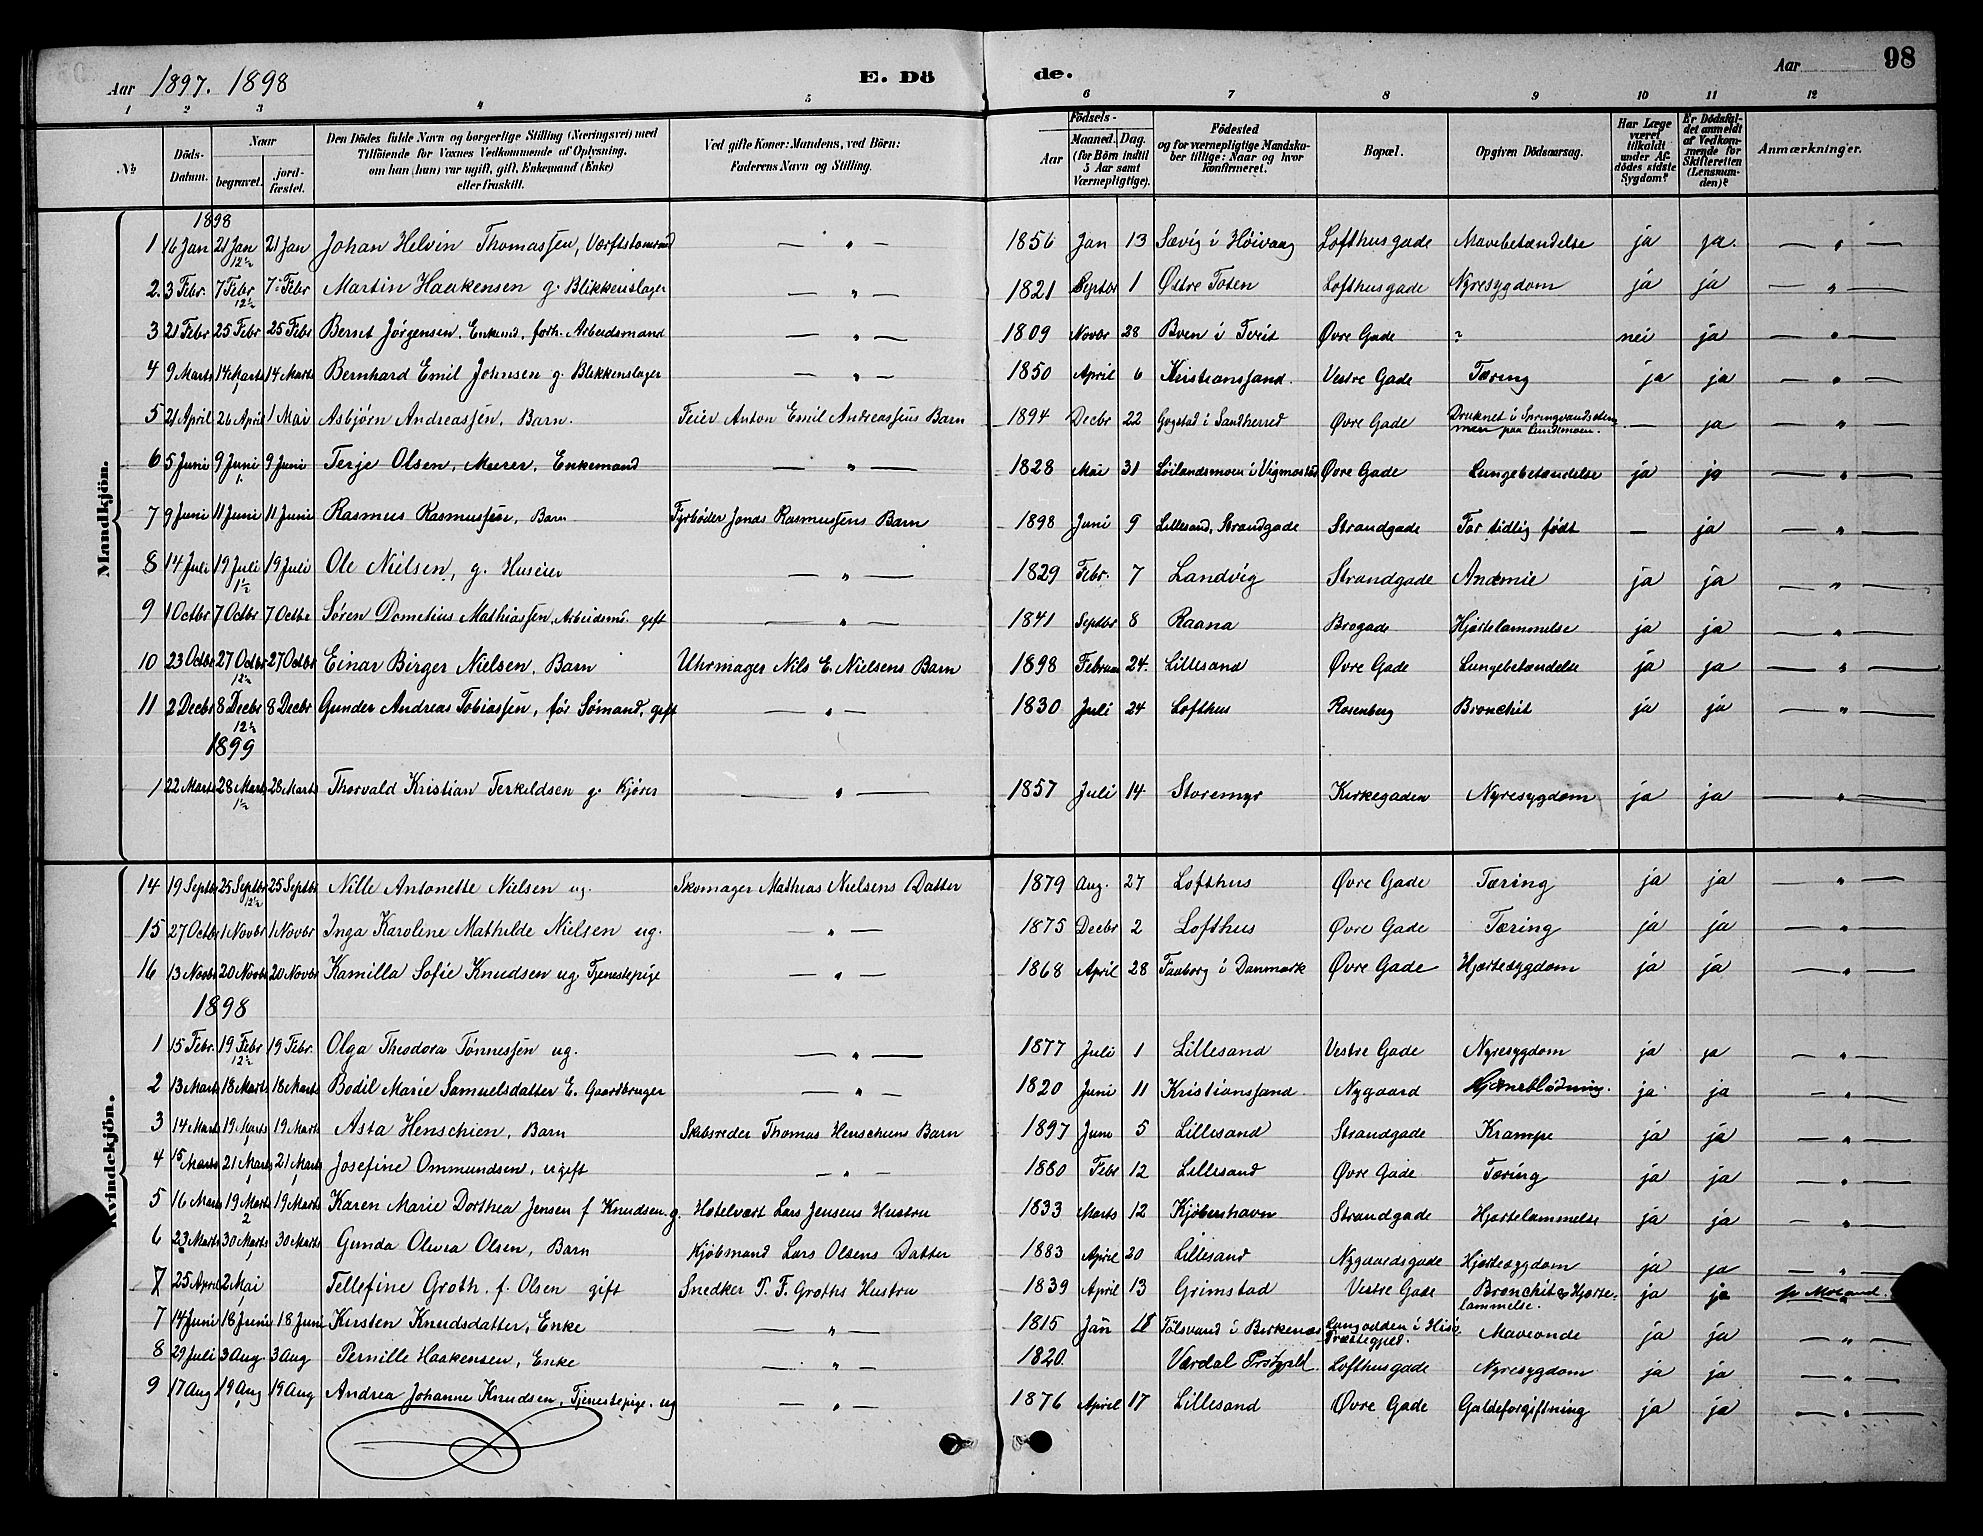 Aar 1897. 1898 E. Dö de. Aar 98
1 2 3 4 5 6 7 8 9 10 11 12
№ Döds-Datum. Naar begravet. jordfæstet. Den Dödes fulde Navn og borgerlige Stilling (Næringsvei) med Tilföiende for Voxnes Vedkommende af Oplysning, om han (hun) var ugift, gift, Enkemand (Enke) eller fraskilt. Ved gifte Koner: Mandens, ved Börn: Faderens Navn og Stilling. Födsels- Aar Maaned. Dag. (for Börn indtil 5 Aar samt Værnepligtige). Födested og for værnepligtige Mandskaber tillige: Naar og hvor konfirmeret. Bopæl. Opgiven Dödsaarsag. Har Læge været tilkaldt under Afdödes sidste Sygdom? Er Dödsfaldet anmeldt af Vedkommende for Skifteretten (Lensmanden)? Anmærkninger.
Mandkjön.
1898
1 16 Jan 21 Jan 12½ 21 Jan Johan Helvin Thomassen, Værftstømmand — „ — 1856 Jan 13 Sævig i Höivaag Lofthusgade Mavebetændelse ja ja. — „ —
2. 3 Febr. 7 Febr 12½ 7 Febr Martin Haakensen g. Blikkenslager — „ — 1821 Septbr 1 Østre Toten Lofthusgade Nyresygdom ja ja — „ —
3 21 Febr 25 Febr 25 Febr Bernt Jörgensen, Enkemd, forh. Arbeidsmand — „ — 1809 Novbr 28 Bven i Tveit Øvre Gade ? nei ja — „ —
4 9 Marts 14 Marts 14 Marts Bernhard Emil Johnsen g. Blikkenslager — „ — 1850 April 6 Kristianssand. Vestre Gade Tæring ja ja — „ —
5 21 April 26 April 1 Mai Asbjørn Andreassen, Barn. Feier Anton Emil Andreassens Barn 1894 Decbr 22 Gogstad i Sandherred Øvre Gade Druknet i paa Lundemoen. — ja — „ —
6 5 Juni 9 Juni 1. 9 Juni Terje Olsen, Murer, Enkemand — „ — 1828 Mai 31 Löilandsmoen i Vigmostad Øvre Gade Lungebetændelse ja ja — „ —
7 9 Juni 11 Juni 11 Juni Rasmus Rasmussen, Barn Fyrbøder Jonas Rasmussens Barn 1898 Juni 9 Lillesand, Strandgade Strandgade For tidlig født — ja — „ —
8 14 Juli 19 Juli 1½ 19 Juli Ole Nielsen, g. Huseier — „ — 1829 Febr. 7 Landvig Strandgade Anæmie ja ja — „ —
9 1 Octbr 7 Octbr 7 Octbr Søren Dometius Mathiassen, Arbeidsmd. gift — „ — 1841 Septbr 8 Raana Brogade Hjertelammelse ja ja — „ —
10 23 Octbr 27 Octbr 12½ 27 Octbr Einar Birger Nielsen, Barn Uhrmager Nils E. Nielsens Barn 1898 Februar 24. Lillesand Øvre Gade Lungebetændelse ja ja — „ —
11 2 Decbr 8 Decbr 12½ 8 Decbr Gunder Andreas Tobiassen, før Sømand, gift — „ — 1830 Juli 24 Lofthus Rosenberg Bronchit ja ja — „ —
1899
1 22 Marts 28 Marts 1½ 28 Marts Thorvald Kristian Terkeldsen g. Kjører — „ — 1857 Juli 14 Storemyr Kirkegaden Nyresygdom ja ja — „ —
Kvindekjön.
14 19 Septbr 25 Septbr 12½ 25 Septbr Nille Antonette Nielsen ug. Skomager Mathias Nielsens Datter 1879 Aug. 27 Lofthus Øvre Gade Tæring ja ja — „ —
15 27 Octbr 1 Novbr 1 Novbr Inga Karoline Mathilde Nielsen ug. — „ — 1875 Decbr 2 Lofthus Øvre Gade Tæring ja ja — „ —
16 13 Novbr 20 Novbr 20 Novbr Kamilla Sofie Knudsen ug. Tjenestepige — „ — 1868 April 28 Faaborg i Danmark Øvre Gade Hjertesygdom ja ja — „ —
1898
1 15 Febr. 19 Febr 12½ 19 Febr. Olga Theodora Tønnessen ug. — „ — 1877 Juli 1 Lillesand Vestre Gade Nyresygdom ja ja — „ —
2 13 Marts 18 Marts 18 Marts Bodil Marie Samuelsdatter E. Gaardbruger — „ — 1820 Juni 11 Kristianssand Nygaard Hjerneblødning. ja ja — „ —
3 14 Marts 19 Marts 1 19 Marts Asta Henschien, Barn Skibsreder Thomas Henschiens Barn 1897 Juni 5 Lillesand Strandgade Krampe ja ja — „ —
4 15 Marts 21 Marts 1 21 Marts Josefine Ommundsen, ugift — „ — 1880 Febr 12 Lillesand Øvre Gade Tæring ja ja — „ —
5 16 Marts 19 Marts 2 19 Marts Karen Marie Dorthea Jensen f Knudsen g. Hotelvært Lars Jensens Hustru 1833 Marts 12 Kjøbenhavn Strandgade Hjertelammelse ja ja — „ —
6 23 Marts 30 Marts 1 30 Marts Gunda Olivia Olsen, Barn Kjøbmand Lars Olsens Datter 1883 April 20 Lillesand Nygaardsgade Hjertesygdom ja ja — „ —
7 25 April 2 Mai Tellefine Groth. f. Olsen gift Snedker T. F. Groths Hustru 1839 April 13 Grimstad Vestre Gade Bronchit & Hjertelammelse. ja ja
7 14 Juni 18 Juni 18 Juni Kirsten Knudsdatter, Enke — „ — 1815 Jan 18 Tolsvand i Birkenæs i Hisø Præstegjeld. Maveonde ja ja — „ —
8 29 Juli 3 Aug 3 Aug Pernille Haakensen, Enke — „ — 1820. Værdal Lofthusgade Nyresygdom ja ja — „ —
9 17 Aug 19 Aug 19 Aug Andrea Johanne Knudsen, Tjenestepige. ug — „ — 1876 April 17 Lillesand Øvre Gade Galdeforgiftning ja ja — „ —